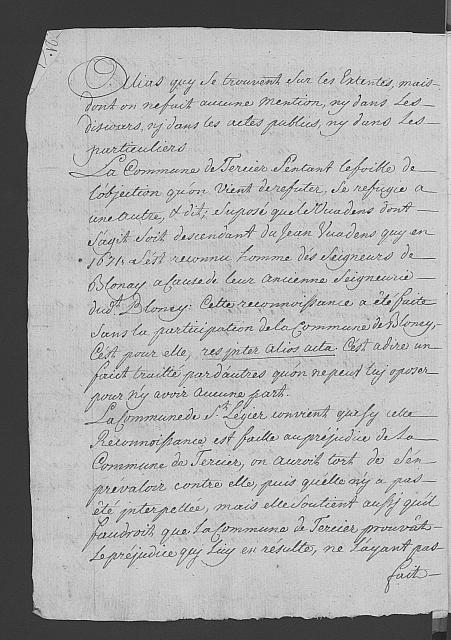 D'alias quy se trouvent sur les Extentes, mais
dont on ne fait aucune mention, ny dans les
discours, ny dans les actes publics, ny dans les
particuliers
La Commune de Tercier sentant le foible de
l'objection qu'on vient de refuter, se refugie a
une autre, & dit; suposé que le Vuadens dont
s'agit soit descendant du Jean Vuadens quy en
1671. s'est reconnu homme des seigneurs de
Blonay a cause de leur ancienne seigneurie
dud.t Blonay: Cette reconnoissance a été faite
sans la participation de la Commune de Blonay,
C'est pour elle, res inter alios acta. C'est a dire un
faict traitté par d'autres qu'on ne peut luy oposer
pour n'y avoir aucune part.
La Commune de St. Legier convient que sy cette
Reconnoissance est faite au préjudice de La
Commune de Tercier, on auroit tort de s'en
prévaloir contre elle, puis qu'elle n'y a pas
été interpellée, mais elle soutient aussy qu'il
faudroit que la Commune de Tercier prouvat
le préjudice quy luy en résulte, ne l'ayant pas
fait